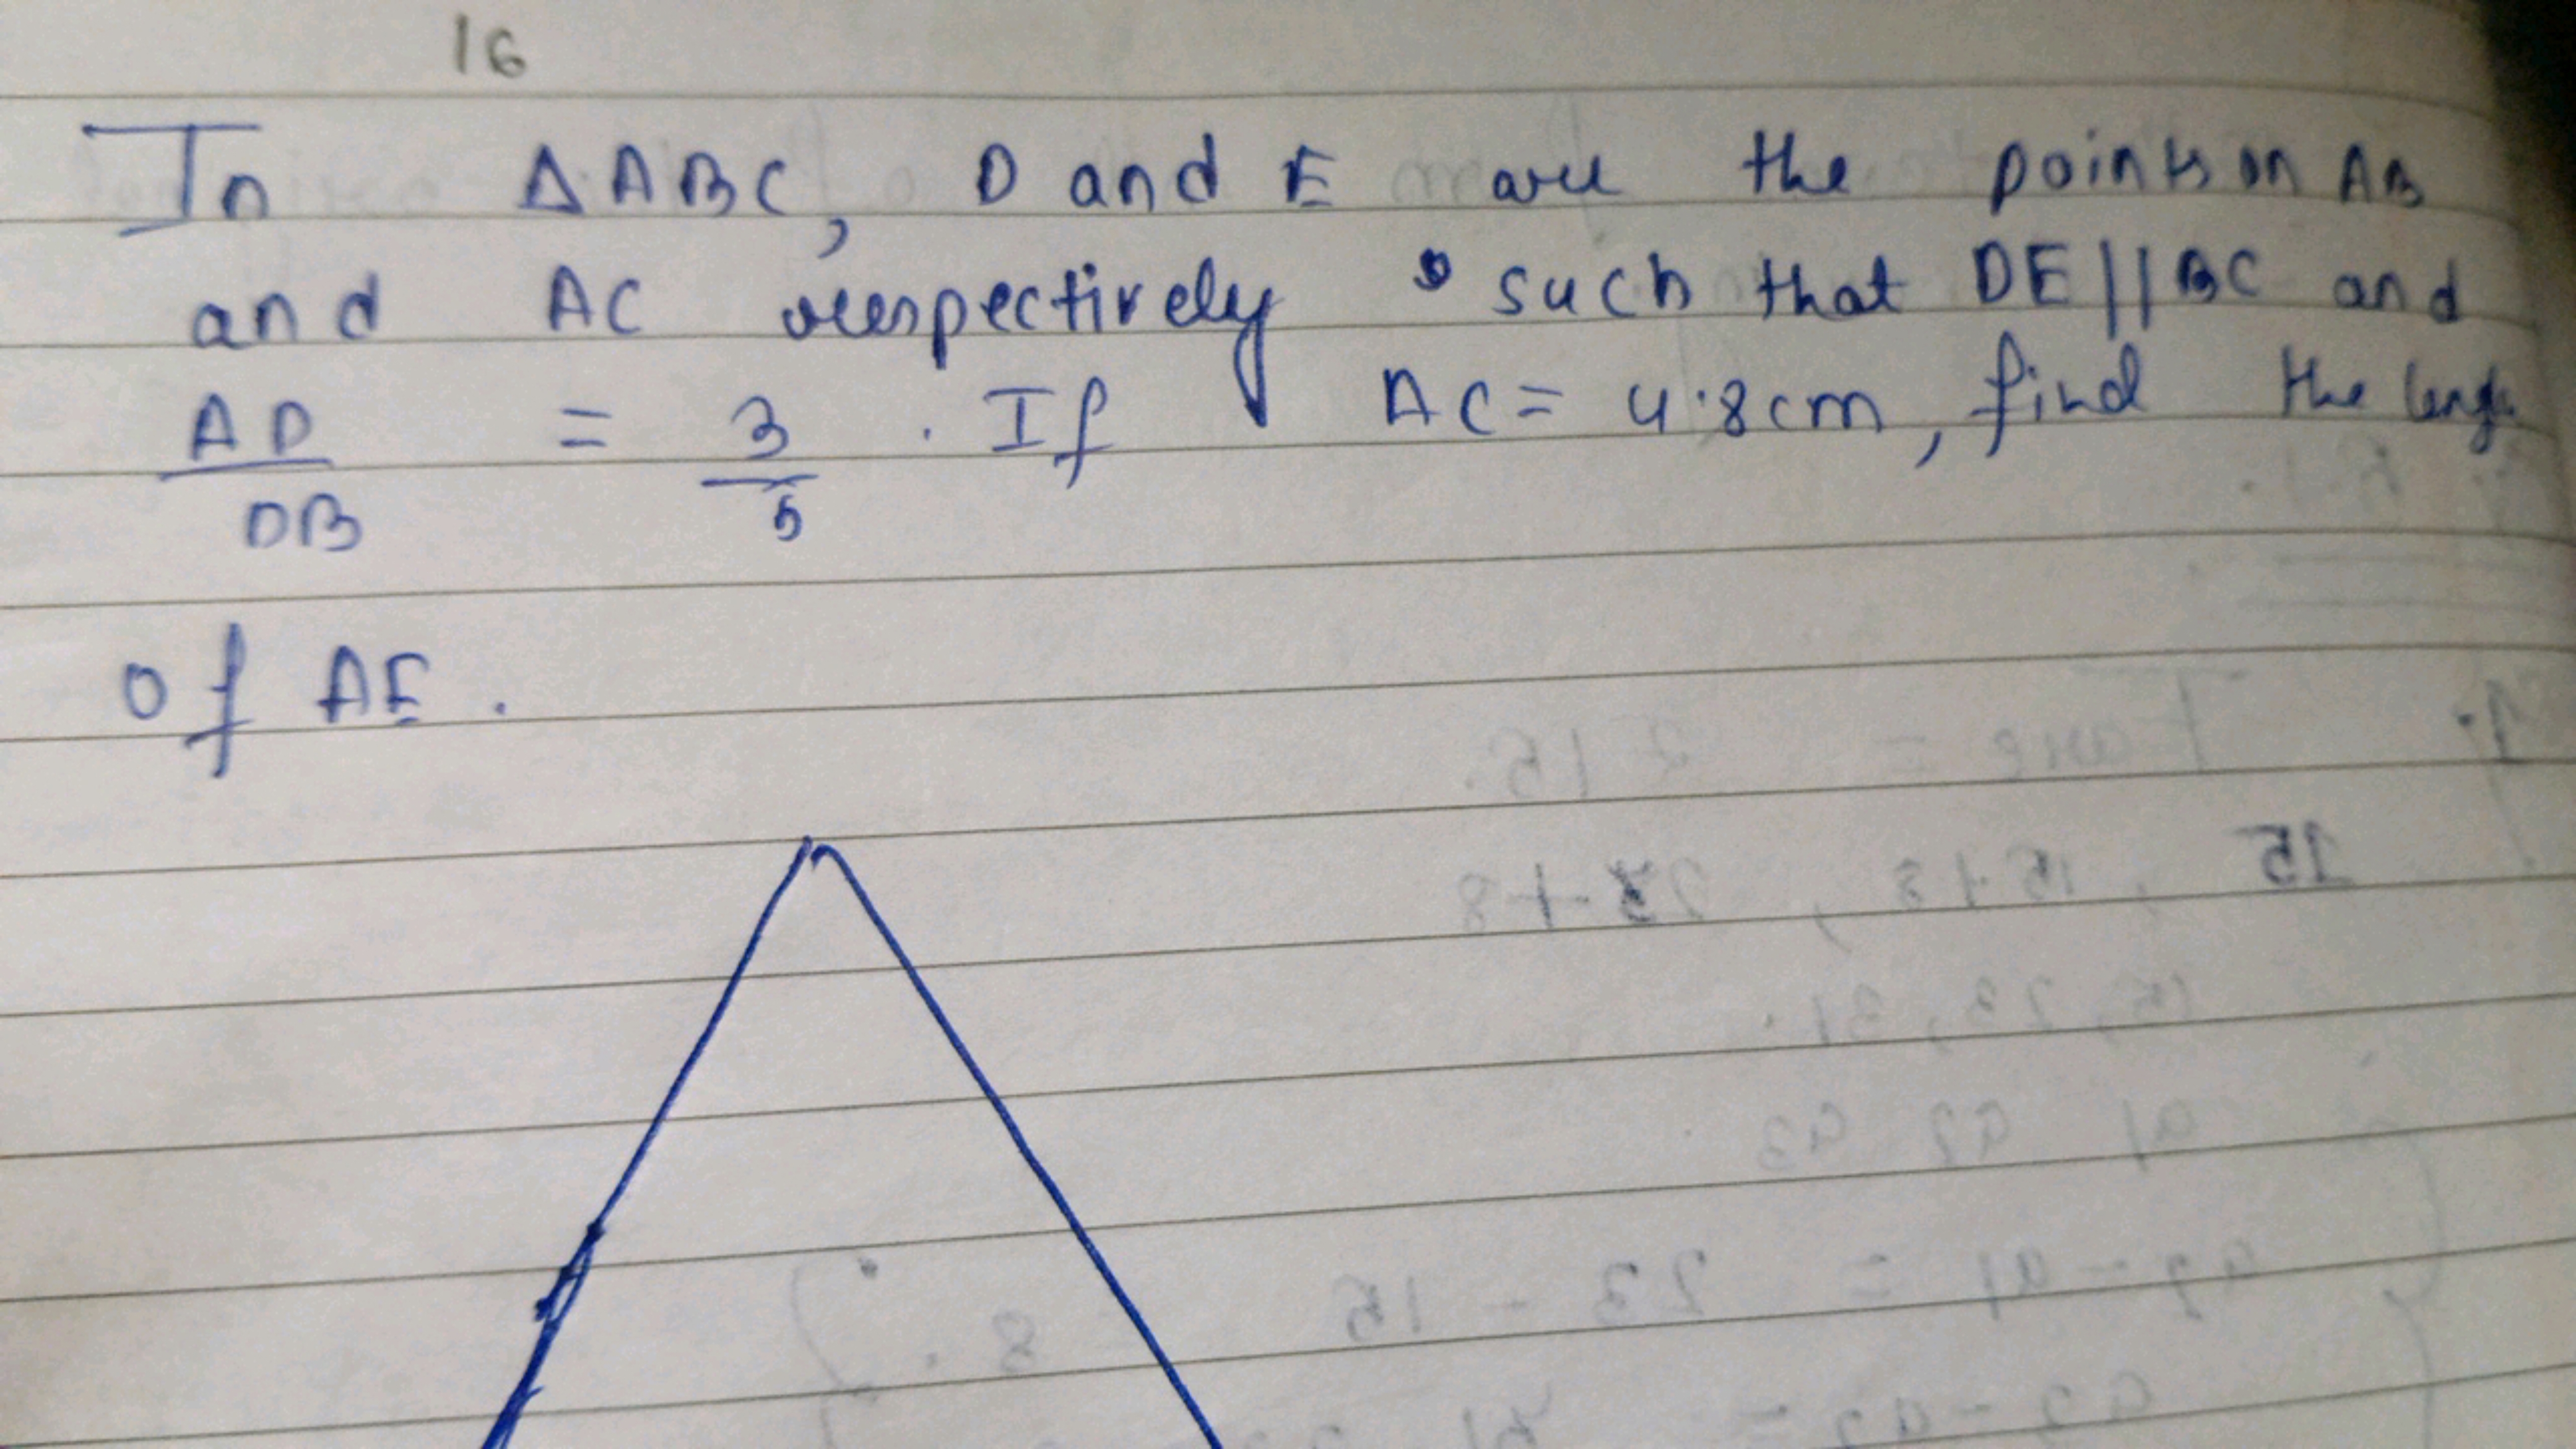 16
In ΔABC, D and E are the points on AB
and AC respectively such that DE||BC and
AD = 3 . If AC = 4.8cm, find the length
DB 5
of AE.